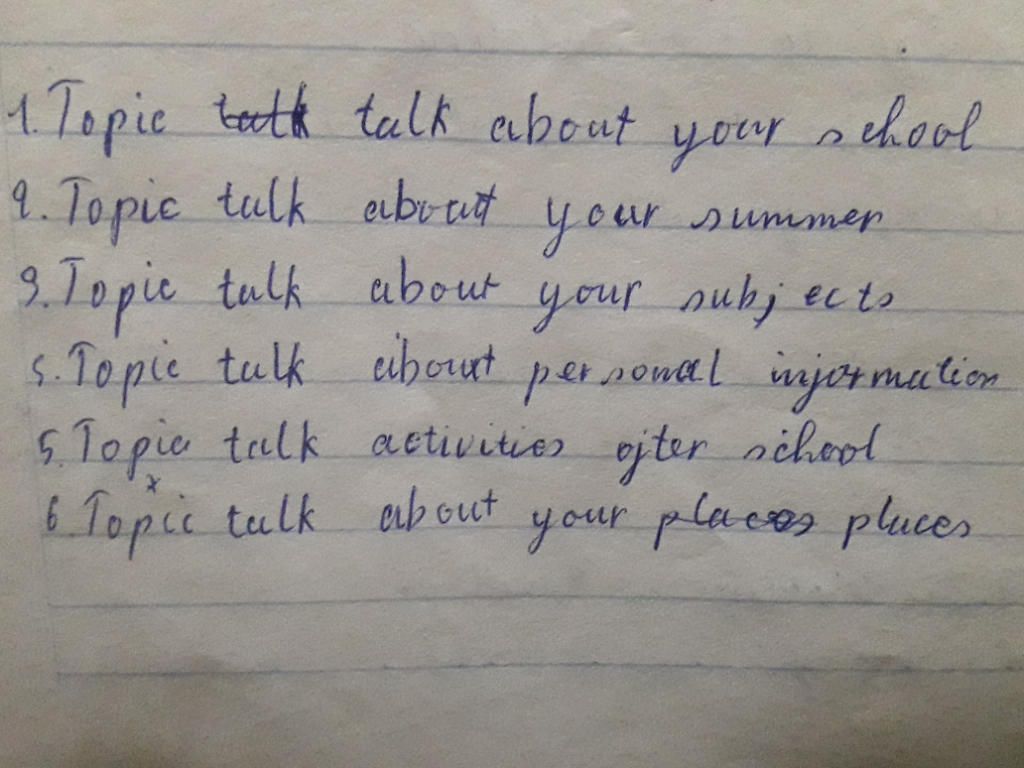 1. Topic talk talk about your school
2. Topic talk about your summer
3. Topic talk about your subjects
5. Topic talk about personal information
5. Topic talk activities ofter school
6. Topic talk about your places places